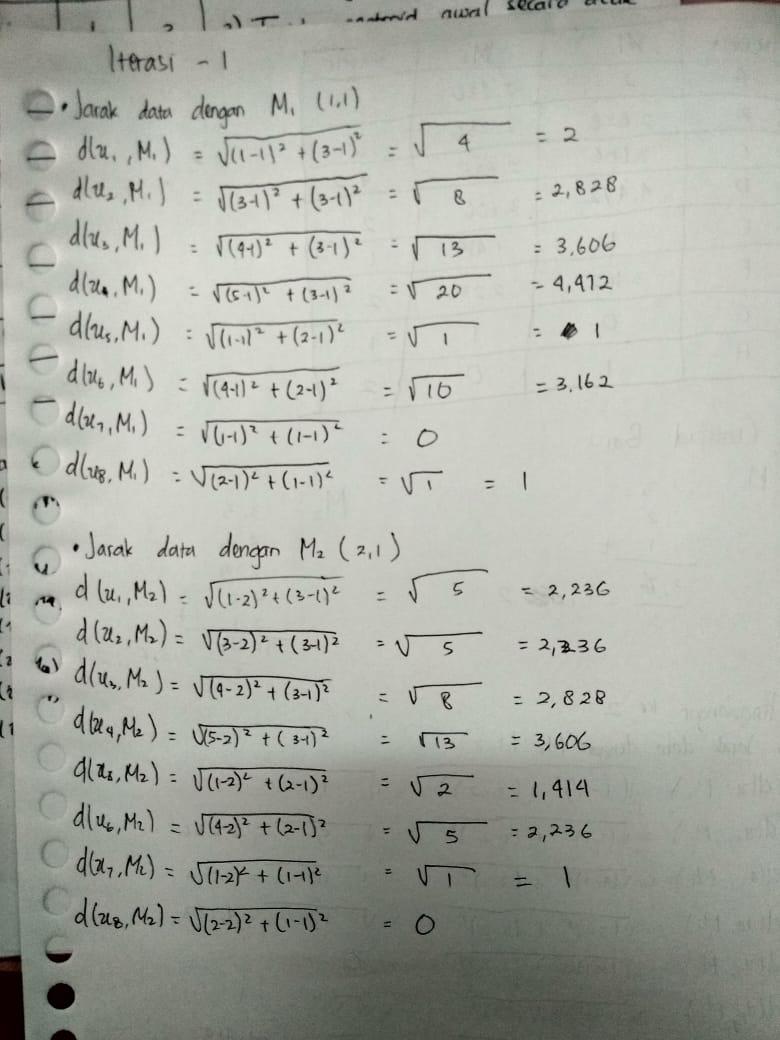 awal secara
Iterasi - 1
• Jarak data dengan M₁ (1,1)
d(x₁, M₁) = √(1-1)² + (3-1)² = √4 = 2
d(x₂, M₁) = √(3-1)² + (3-1)² = √8 = 2,828
d(x₃, M₁) = √(4-1)² + (3-1)² = √13 = 3,606
d(x₄, M₁) = √(5-1)² + (3-1)² = √20 = 4,472
d(x₅, M₁) = √(1-1)² + (2-1)² = √1 = 1
d(x₆, M₁) = √(4-1)² + (2-1)² = √10 = 3,162
d(x₇, M₁) = √(1-1)² + (1-1)² = 0
d(x₈, M₁) = √(2-1)² + (1-1)² = √1 = 1
• Jarak data dengan M₂ (2,1)
d(x₁, M₂) = √(1-2)² + (3-1)² = √5 = 2,236
d(x₂, M₂) = √(3-2)² + (3-1)² = √5 = 2,236
d(x₃, M₂) = √(4-2)² + (3-1)² = √8 = 2,828
d(x₄, M₂) = √(5-2)² + (3-1)² = √13 = 3,606
d(x₅, M₂) = √(1-2)² + (2-1)² = √2 = 1,414
d(x₆, M₂) = √(4-2)² + (2-1)² = √5 = 2,236
d(x₇, M₂) = √(1-2)² + (1-1)² = √1 = 1
d(x₈, M₂) = √(2-2)² + (1-1)² = 0